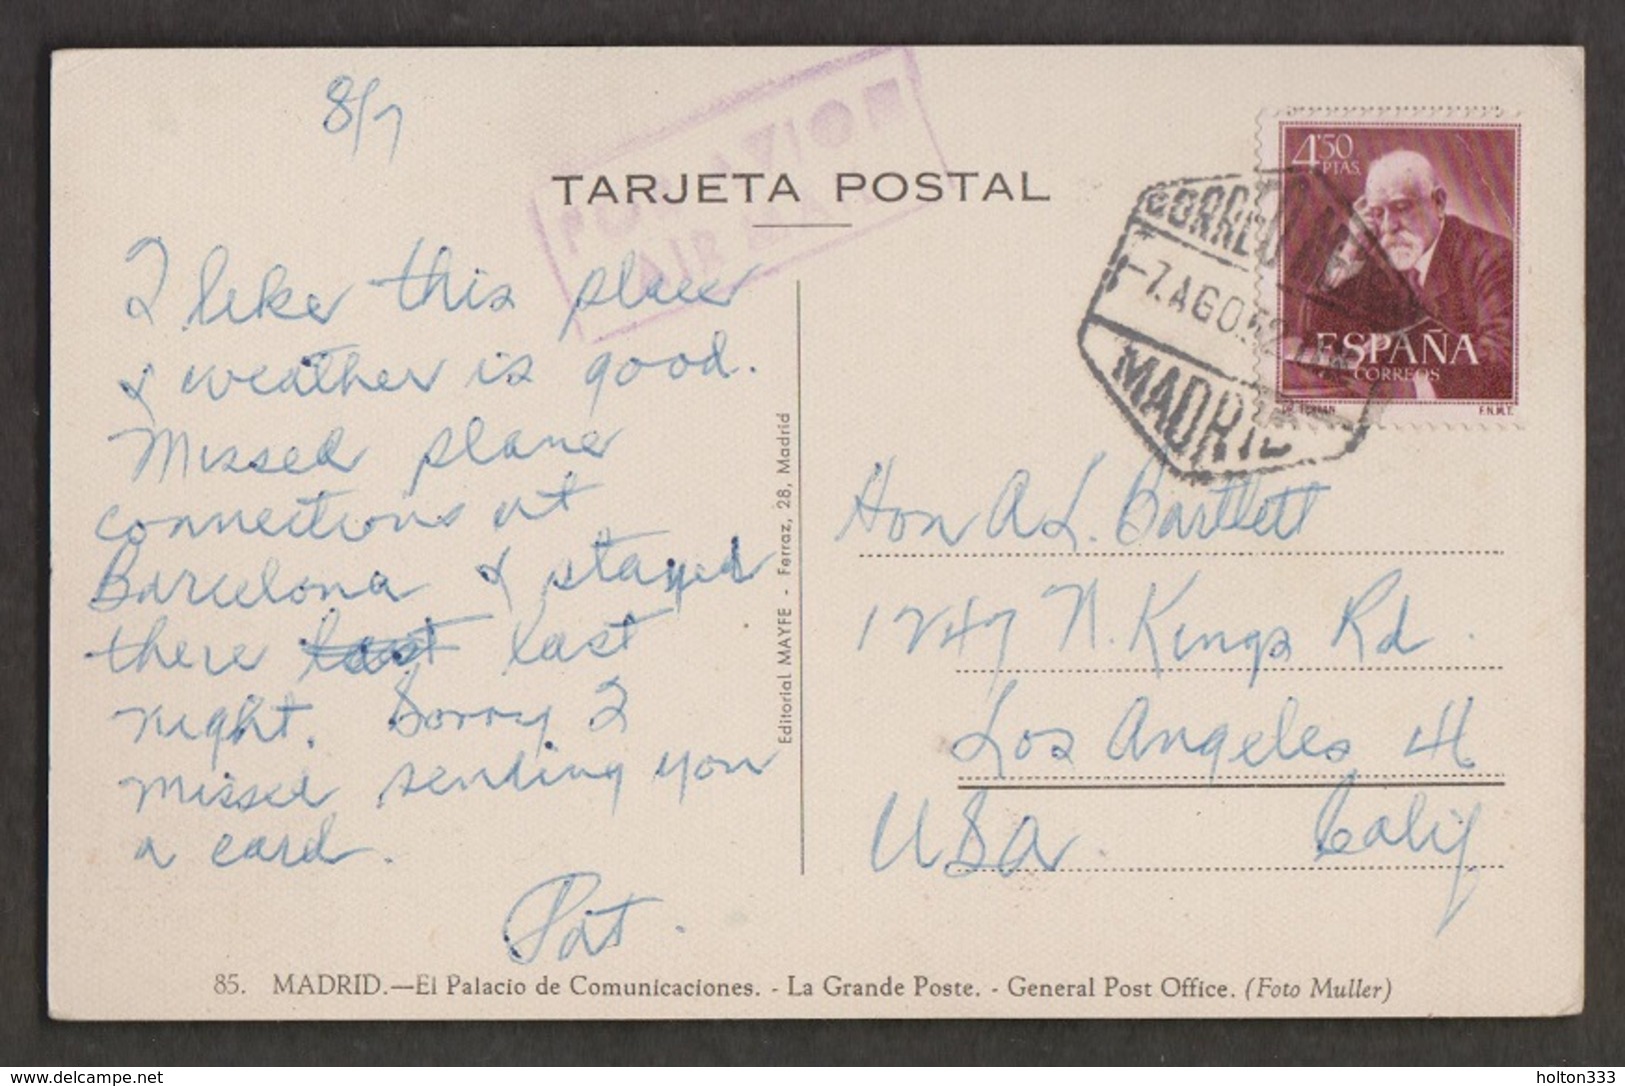 8/7
POR AVION
AIR MAIL
TARJETA POSTAL
4'50
PTAS.
CORREO AEREO
-7.AGO.52
MADRID
ESPAÑA
CORREOS
DR. FERRAN
F.N.M.T.
I like this place
& weather is good.
Missed plane
connections at
Barcelona & stayed
there last last
night. Sorry I
missed sending you
a card.
Pat.
Editorial MAYFE - Ferraz, 28, Madrid
Hon A L. Bartlett
1747 N. Kings Rd.
Los Angeles 46
USA Calif
85. MADRID.—El Palacio de Comunicaciones. - La Grande Poste. - General Post Office. (Foto Muller)
www.delcampe.net
holton333